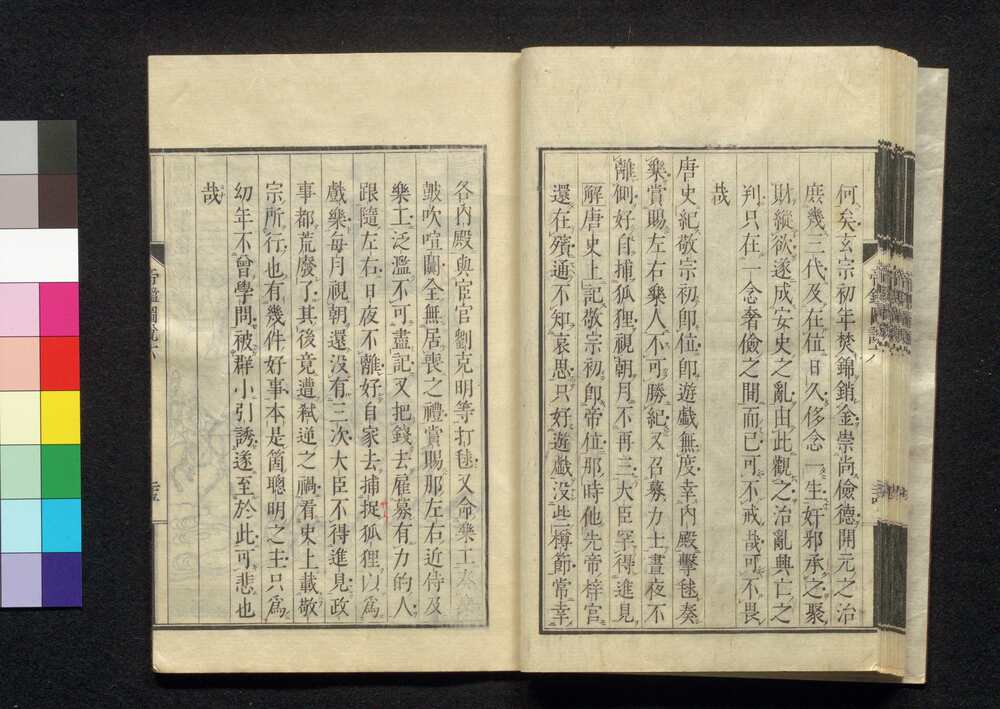 何矣玄宗初年焚錦銷金崇尚儉德開元之治
庶幾三代及在位日久侈念一生奸邪承之聚
財縱欲遂成安史之亂由此觀之治亂興亡之
判只在一念奢儉之間而已可不戒哉可不畏
哉
唐史紀敬宗初即位即遊戲無度幸內殿擊毬奏
樂賞賜左右樂人不可勝紀又召募力士晝夜不
離側好自捕狐狸視朝月不再三大臣罕得進見
解唐史上記敬宗初即帝位那時他先帝梓宮
還在殯通不知哀思只好遊戲沒些樽節常幸
各內殿與宦官劉克明等打毬又命樂工奏
鼓吹喧鬧全無居喪之禮賞賜那左右近侍及
樂工泛濫不可盡記又把錢去雇募有力的人
跟隨左右日夜不離好自家去捕捉狐狸以為
戲樂每月視朝還沒有三次大臣不得進見政
事都荒廢了其後竟遭弒逆之禍看史上載敬
宗所行也有幾件好事本是箇聰明之主只為
幼年不曾學問被群小引誘遂至於此可悲也
哉
帝鑑圖說六